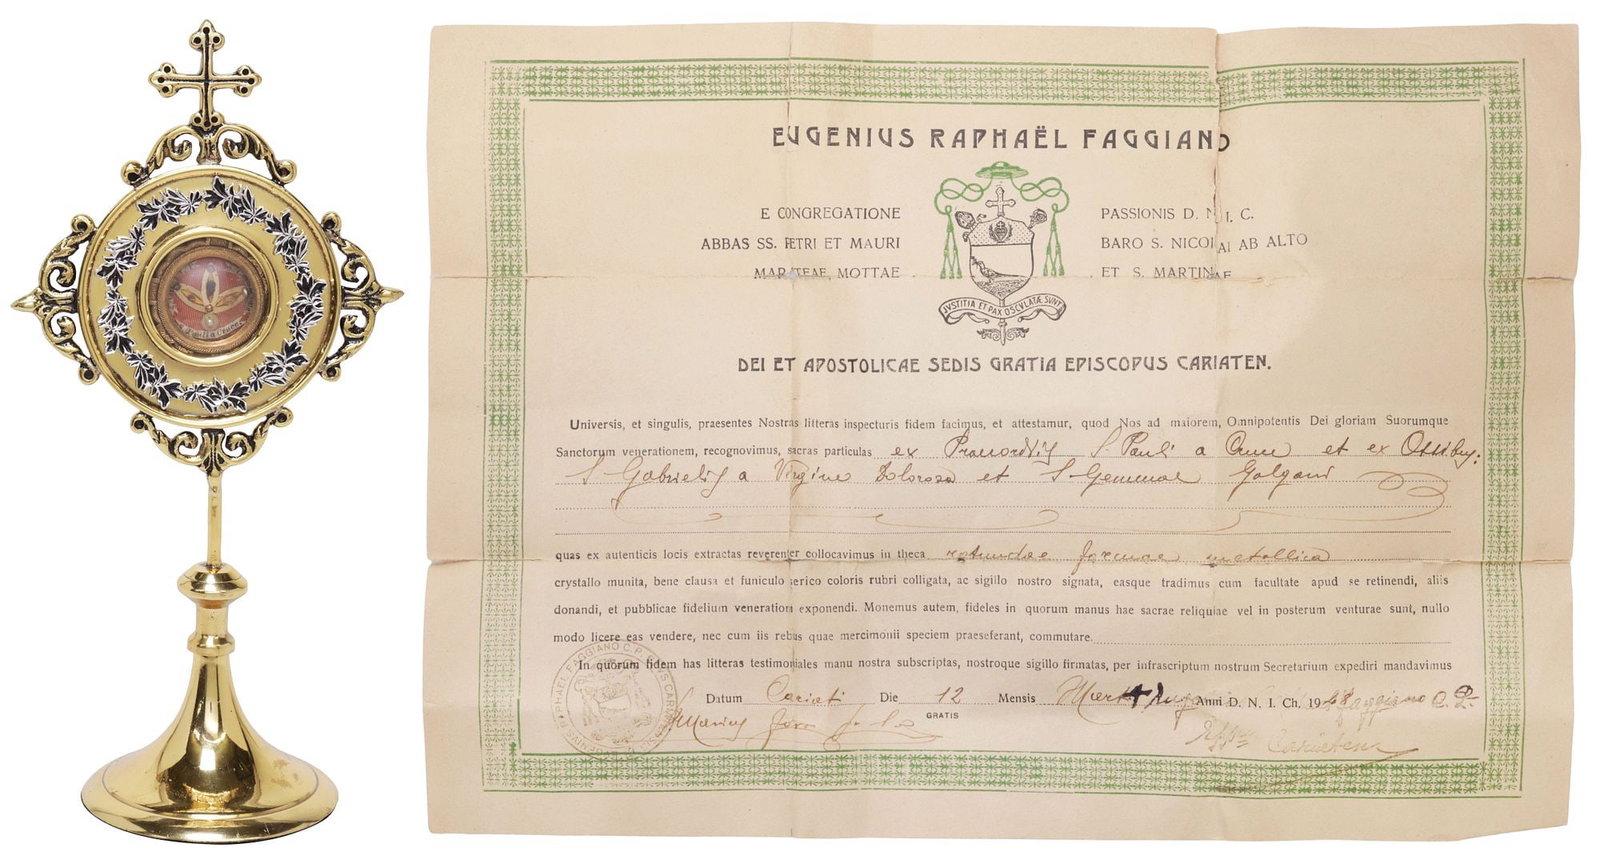 EUGENIUS RAPHAËL FAGGIANO
E CONGREGATIONE PASSIONIS D. N. I. C.
ABBAS SS. PETRI ET MAURI BARO S. NICOLAI AB ALTO
MARATEAE, MOTTAE ET S. MARTINAE
JVSTITIA ET PAX OSCVLATÆ SVNT
DEI ET APOSTOLICAE SEDIS GRATIA EPISCOPUS CARIATEN.
Universis, et singulis, praesentes Nostras litteras inspecturis fidem facimus, et attestamur, quod Nos ad maiorem, Omnipotentis Dei gloriam Suorumque
Sanctorum venerationem, recognovimus, sacras particulas ex S. Pauli a Cruce et ex Ossibus:
S. Gabrielis a Virgine Dolorosa et S. Gemmae Galgani
quas ex autenticis locis extractas reverenter collocavimus in theca rotundae formae metallica
crystallo munita, bene clausa et funiculo serico coloris rubri colligata, ac sigillo nostro signata, easque tradimus cum facultate apud se retinendi, aliis
donandi, et pubblicae fidelium venerationi exponendi. Monemus autem, fideles in quorum manus hae sacrae reliquiae vel in posterum venturae sunt, nullo
modo licere eas vendere, nec cum iis rebus quae mercimonii speciem praeseferant, commutare.
In quorum fidem has litteras testimoniales manu nostra subscriptas, nostroque sigillo firmatas, per infrascriptum nostrum Secretarium expediri mandavimus
Datum Cariati Die 12 Mensis Anni D. N. I. Ch. 19 Faggiano C. P.
GRATIS
Cariaten